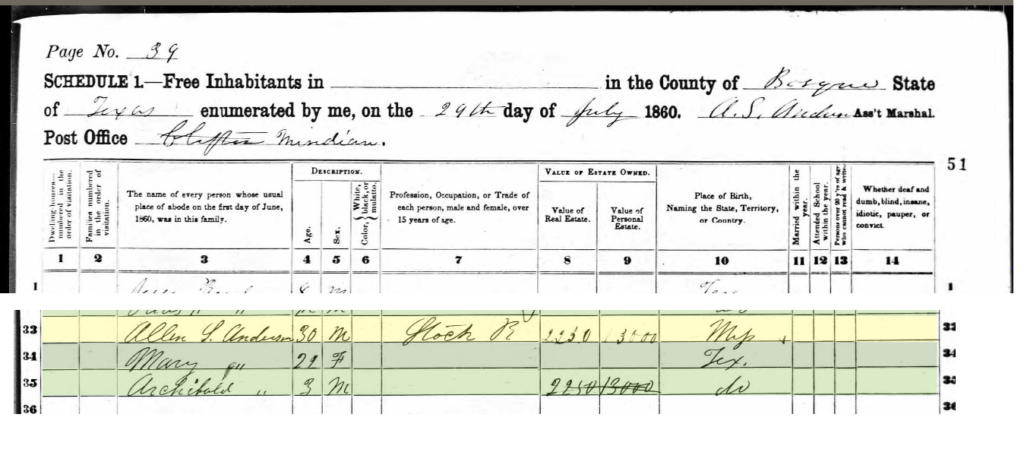 Page No. 39
SCHEDULE 1.—Free Inhabitants in in the County of Bosque State
of Texas enumerated by me, on the 29th day of July 1860. A. S. Anderson Ass't Marshal.
Post Office Clifton Meridian.
51
Dwelling-houses—numbered in the order of visitation.
Families numbered in the order of visitation.
The name of every person whose usual place of abode on the first day of June, 1860, was in this family.
DESCRIPTION.
Age.
Sex.
Color, White, black, or mulatto.
Profession, Occupation, or Trade of each person, male and female, over 15 years of age.
VALUE OF ESTATE OWNED.
Value of Real Estate.
Value of Personal Estate.
Place of Birth, Naming the State, Territory, or Country.
Married within the year.
Attended School within the year.
Persons over 20 y'rs of age who cannot read & write.
Whether deaf and dumb, blind, insane, idiotic, pauper, or convict.
1 2 3 4 5 6 7 8 9 10 11 12 13 14
1 m Tex 1
33 Allen S. Anderson 30 M Stock R 2250 13000 Miss 33
34 Mary " 29 F Tex. 34
35 Archibald " 3 M 2250 13000 do 35
36 36